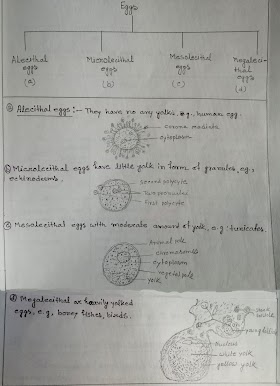 Eggs
Alecithal eggs (a)
Microlecithal eggs (b)
Mesolecithal eggs (c)
Megaleci-thal eggs (d)
(a) Alecithal eggs:- They have no any yolks, e.g., human egg.
corona radiata
cytoplasm
(b) Microlecithal eggs have little yolk in form of granules, eg., echinoderms.
second polocyte
first polocyte
(c) Mesolecithal eggs with moderate amount of yolk, e.g. tunicates.
Animal pole
cytoplasm
vegetal pole
yolk
(d) Megalecithal or heavily-yolked
eggs, e.g., boney fishes, birds.
nucleus
white yolk
yellow yolk